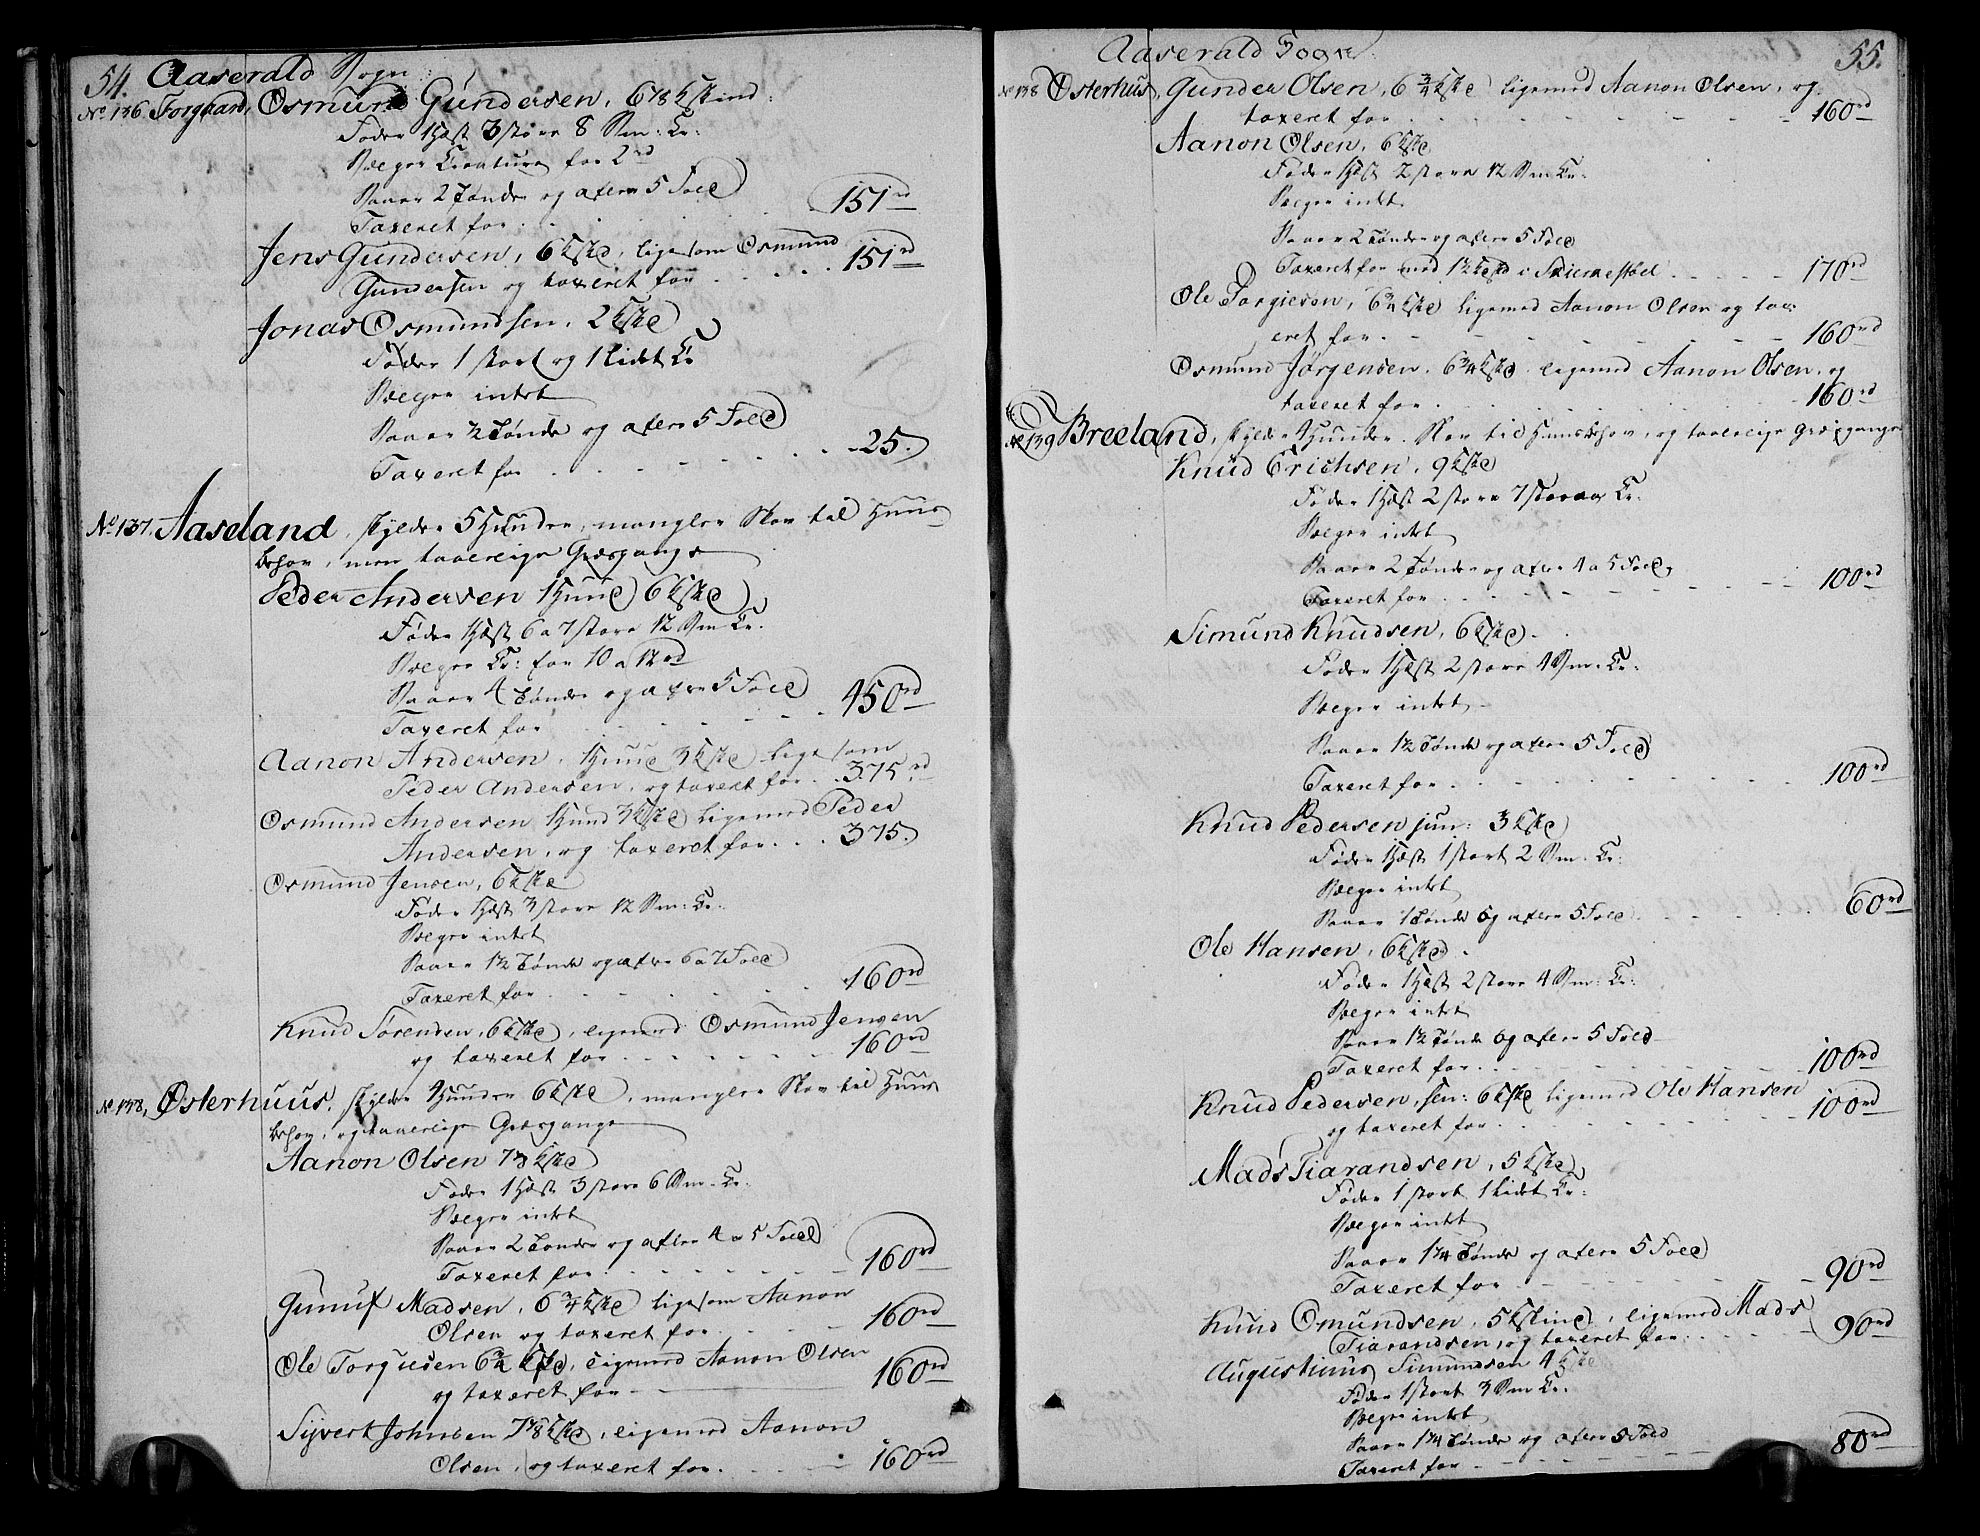 54. Aaserald Sogn
No 136 Torgaard, Osmund Gundersen, 6 7/8 Kskind:
Føder 1 Hæst 3 store 8 Sm: Cr:
Sælger Creature for 2rd
Saaer 2 Tønder og afler 5 Fold
Taxeret for . . 151rd
Jens Gundersen, 6 Kskd, ligesom Osmund
Gundersen og taxeret for . . . 151rd
Jonas Osmundsen, 2 Kskd
Føder 1 stort og 1 lidet Cr
Sælger intet
Saaer 1/2 Tønde og afler 5 Fold
Taxeret for . . . 25.
No 137. Aaseland, skylder 5 Huuder, mangler Skov til Huus
behov, men taalelige Græsgange
Peder Andersen 1 Huud 6 Kskd
Føder 1 Hæst 6 a 7 store 12 Sm Cr.
Sælger Cr: for 10 a 12rd
Saaer 4 Tønder og afler 5 Fold
Taxeret for . . . 450rd
Aanon Andersen, 1 Huud 3 Kskd ligesom
Peder Andersen, og taxeret for . . 375rd
Osmund Andersen 1 Huud 3 Kskd ligemed Peder
Andersen, og taxeret for . . . 375.
Osmund Jensen, 6 Kskd
Føder 1 Hæst 3 store 12 Sm: Cr:
Sælger intet
Saaer 1 1/2 Tønde og afler 6 a 7 Fold
Taxeret for . . . 160rd
Knud Sørensen, 6 Kskd, ligemed Osmund Jensen
og taxeret for . . . 160rd
No 138, Østerhuus, skylder 4 Huuder 6 Kskd, mangler Skov til Huus
behov, og taalelige Græsgange
Aanon Olsen 7 Kskd
Føder 1 Hæst 3 store 6 Sm. Cr:
Sælger intet
Saaer 2 Tønder og afler 4 a 5 Fold
Taxeret for . . . 160rd
Gunuf Madsen, 6 3/4 Kskd ligesom Aanon
Olsen og taxeret for . . . 160rd
Ole Torgiesen 6 3/4 Kskd, ligemed Aanon Olsen
og taxeret for . 160rd
Syvert Johnsen 7 Kskd, ligemed Aanon
Olsen, og taxeret for . . . 160rd
Aaserald Sogn 55.
No 138 Østerhus, Gunder Olsen, 6 3/4 Kskd ligemed Aanon Olsen, og
taxeret for . . . 160rd
Aanon Olsen, 6 Kskd
Føder 1 Hæst 2 store 12 Sm Cr.
Sælger intet
Saaer 2 Tønder og afler 5 Fold
Taxeret for med 1 1/2 Kskd i . . . 170rd
Ole Torgiesen, 6 3/4 Kskd ligemed Aanon Olsen og tax:
eret for . . . 160rd
Osmund Jørgensen, 6 3/4 Kskd ligemed Aanon Olsen, og
taxeret for . . . 160rd
No 139 Breeland, skylder 4 Huuder. Skov til Huusbehov, og taalelige Græsgange
Knud Erichsen, 9 Kskd
Føder 1 Hæst 2 store 7 Cr.
Sælger intet
Saaer 2 Tønder og afler 4 a 5 Fold,
Taxeret for . . . 100rd
Simund Knudsen, 6 Kskd.
Føder 1 Hæst 2 store 4 Sm. Cr:
Sælger intet
Saaer 1 1/2 Tønde og afler 5 Fold
Taxeret for . . . 100rd
Knud Pedersen jun: 3 Kskd
Føder 1 Hæst 1 stort 2 Sm. Cr:
Sælger intet
Saaer 1 Tønde og afler 5 Fold . . . 60rd
Ole Hansen, 6 Kskd.
Føder 1 Hæst 2 store 4 Sm: Cr:
Sælger intet
Saaer 1 1/2 Tønde og afler 5 Fold
Taxeret for . . . 100rd
Knud Pedersen, sen: 6 Kskd ligemed Ole Hansen
og taxeret for . . . 100rd
Mads Tiarandsen, 5 Kskd
Føder 1 stort 1 lidet Cr:
Sælger intet
Saaer 1 1/4 Tønde og afler 5 Fold
Taxeret for . . . 90rd
Knud Omundsen, 5 Kskind, ligemed Mads
Tiarandsen, og taxeret for . . . 90rd
Augustinus Simundsen 4 Kskd
Føder 1 stort 3 Sm Cr.
Sælger intet
Saaer 1 1/4 Tønde og afler 5 Fold
Taxeret for . . . 80rd